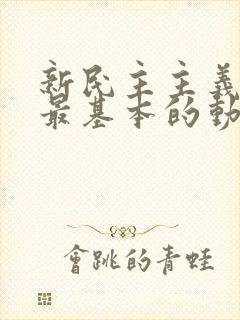 新民主主義
最基本的動
會跳的青蛙